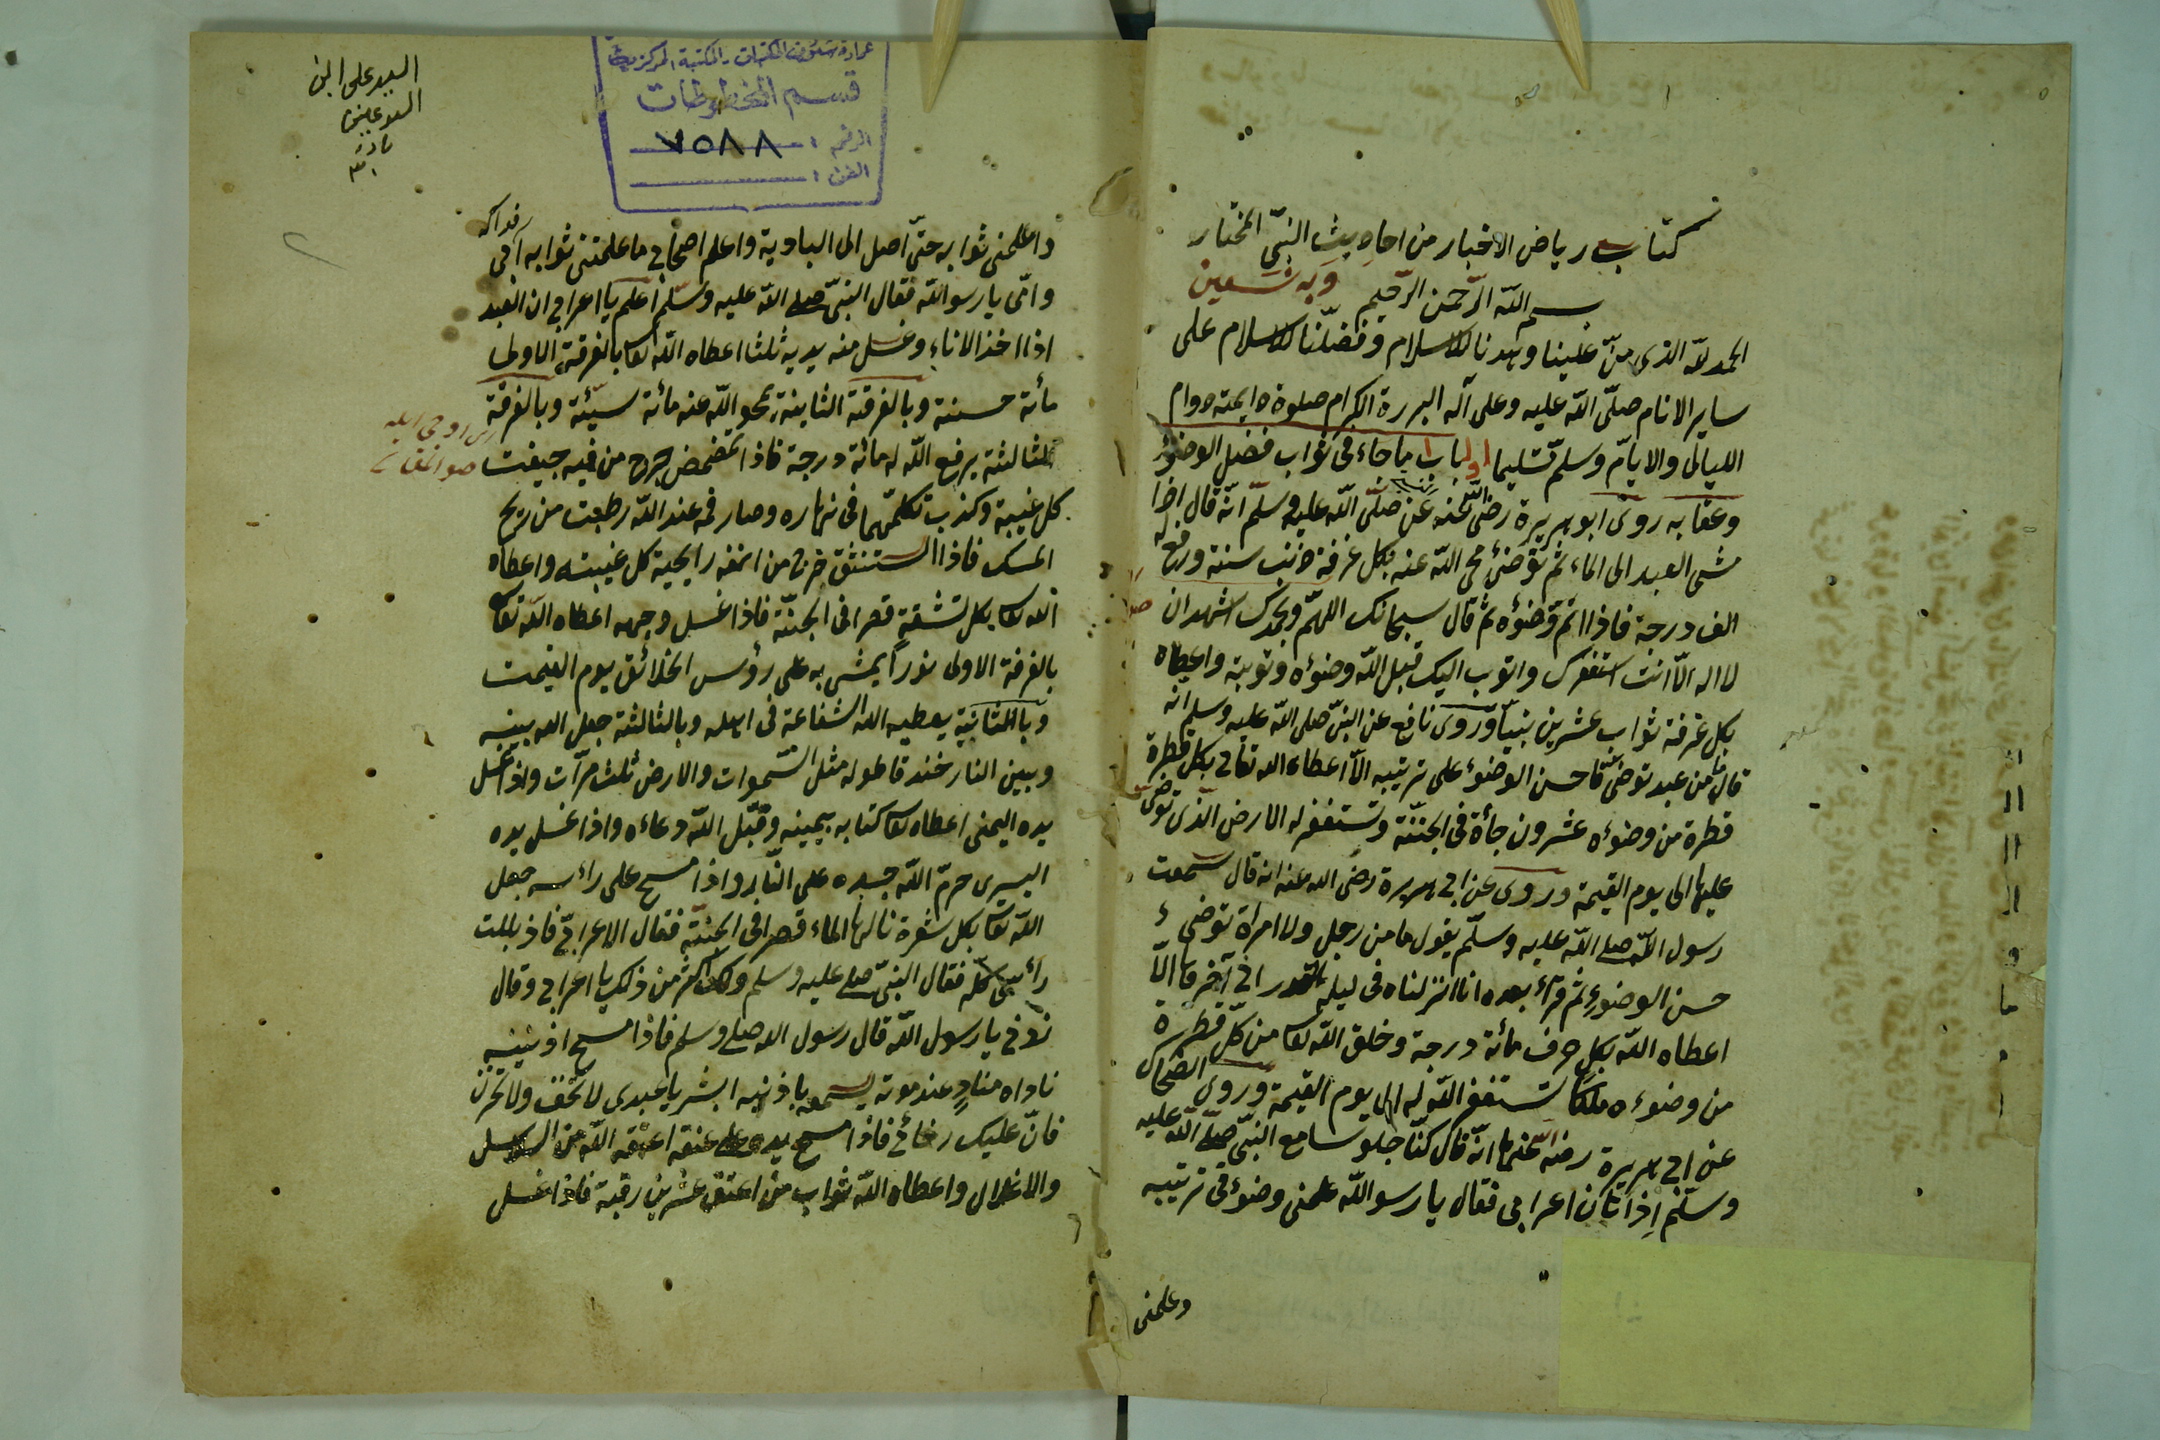 كتاب رياض الاخبار من احاديث النبّى المختار
بسم الله الرّحمن الرّحيم وبه نستعين
الحمد لله الذى منّ علينا وهدنا للاسلام وفضّلنا للاسلام على
ساير الانام صلّى الله عليه وعلى آله البررة الكرام صلوة دايمة دوام
الليالى والايام وسلم تسليما باب ما جاء فى ثواب فضل الوضوء
وعقابه روى ابو هريرة رضى الله عنه عن صلّى الله عليه وسلّم انّه قال اذا
مشى العبد الى الماء ثم توضئ محى الله عنه بكل غرفة ذنب سنة ورفع له
الف درجة فاذا اتم وضوءه ثم قال سبحانك اللهمّ وبحمدك اشهد ان
لا اله الّا انت استغفرك واتوب اليك قبل الله وضوءه وتوبته واعطاه
بكل غرفة ثواب عشرين نبيا وروى نافع عن النبىّ صلى الله عليه وسلم انه
قال ما من عبد توضئ فاحسن الوضوء على ترتيبه الّا اعطاه الله تعالى بكل قطرة
قطرة من وضوءه عشرون جأة فى الجنّة وتستغفر له الارض الّذى توضئ
عليها الى يوم القيمة وروى عن ابى هريرة رضى الله عنه انه قال سمعت
رسول الله صلى الله عليه وسلّم يقول ما من رجل ولا امراة توضئ
حسن الوضوء ثم قرأ بعده انا انزلناه فى ليلة القدر الى آخرها الّا
اعطاه الله بكل حرف مائة درجة وخلق الله تعا من كلّ قطرة
من وضوءه ملكا تستغفر الله له الى يوم القيمة وروى الضحاك
عن ابى هريرة رضى الله عنهما انّه قال كنّا جلوسا مع النبىّ صلّى الله عليه
وسلّم اذ اتان اعرابى فقال يا رسو الله علمنى وضوءى ترتيبه
وعلمنى
عمادة شئون المكتبات - المكتبة المركزية
قسم المخطوطات
الرقم : ٧٥٨٨
الفن :
السيد على ابن
فداك
واعلمنى ثوابه حتّى اصل الى البادية واعلم اصحابى ما علمتنى ثوابه ابى
وامّى يا رسو الله فقال النبىّ صلى الله عليه وسلّم اعلم يا اعرابى ان العبد
اذا اخذ الاناء وغسل منه يديه ثلثا اعطاه الله تعا بالغرفة الاولى
مأته حسنة وبالغرفة الثانية يمحو الله عنه مائة سيّئة وبالغرفة
الثالثة يرفع الله له مائة درجة فاذا تمضمض خرج من فيه جيفت
كل غيبة وكذب تكلّمهما فى نهاره وصار فمه عند الله اطيبت من ريح
المسك فاذا استنشق خرج من انفه رايحية كل غيبته واعطاه
الله تعا بكل تنشقة قصرا فى الجنّة فاذا غسل وجهه اعطاه الله تعا
بالغرفة الاولى نوراً يمشى به على رؤس الخلائق يوم القيمت
وبالثانية يعطيه الله الشفاعة فى اهله وبالثالثة جعل الله بينه
وبين النار خندقا طوله مثل السّموات والارض ثلث مرّات واذا غسل
يده اليمنى اعطاه تعا كتابه بيمينه وقبّل الله دعاءه واذا غسل يده
اليسرى حرمّ الله جسده على النّار واذا مسح على رأسه جعل
الله تعا بكل شعرة نالها الماء قصرا فى الجنّة فقال الاعرابىّ فاذ بللت
رأسى كلّه فقال النبىّ صلى عليه وسلم ولك اكثر من ذلك يا اعرابى وقال
زدنى يا رسول الله قال رسول الله صلى وسلم فاذا مسح اذنيه
ناداه منادٍ عند موته يسمعه باذنيه ابشر يا عبدى لا تخف ولا تحزن
فانّ عليك رضائى فاذا مسح يده على عنقه اعتقه الله من السلاسل
والاغلال واعطاه الله ثواب من اعتق عشرين رقبة فاذا غسل